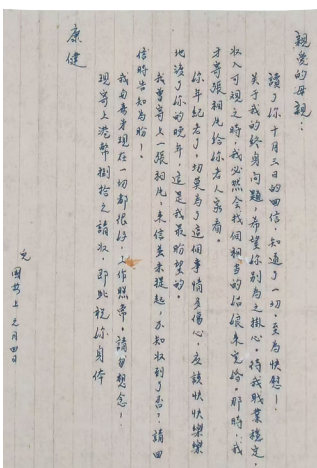 親愛的母親：
讀了你十月三日的回信，知道了一切，至為快慰！
关于我的終身問題，希望你别為之掀心，待我职業穩定，
收入可观之時，我必然会找個相当的姑娘来完婚。那時，我
才寄張相片给你老人家看。
你年纪老了，切莫為了這個事情多傷心，应該快快樂樂
地渡了你的晚年，這是我最盼望的。
我曾寄上一張相片，来信並未提起，不知收到了否？請回
信時告知為盼！
我由香 来現在一切都很好，工作照常，請勿想念！
現寄上港幣捌拾之請收，即此祝你身体
康健
國 上 月四日